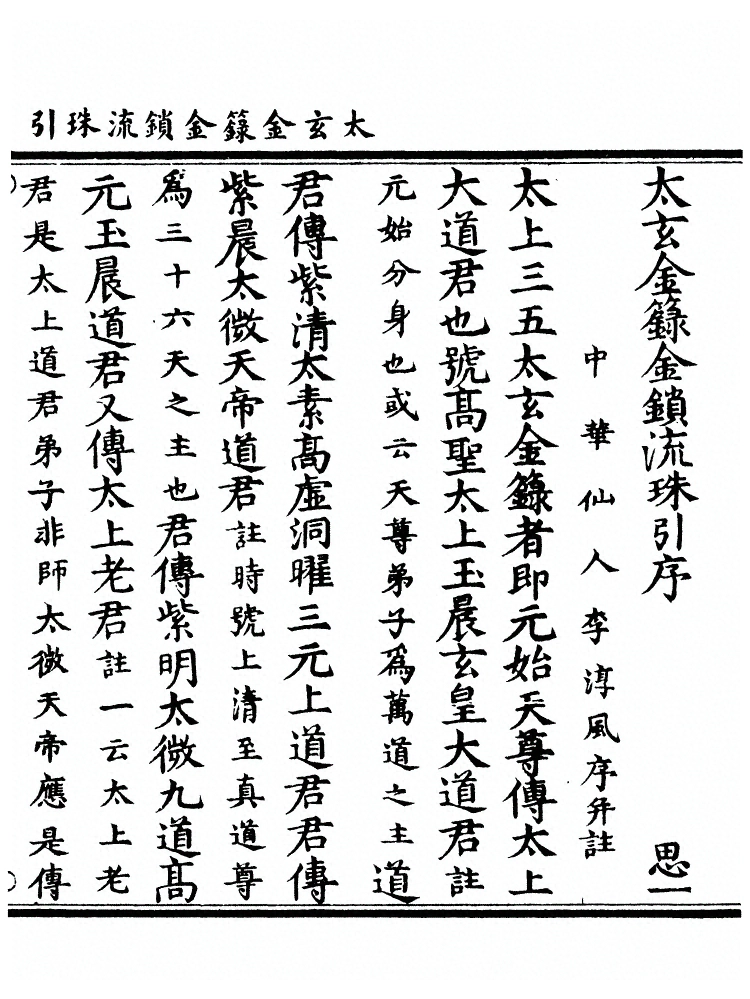 太玄金籙金鎖流珠引
太玄金籙金鎖流珠引序 思一
中華仙人李淳風序并註
太上三五太玄金籙者即元始天尊傳太上
大道君也號髙聖太上玉晨玄皇大道君註
元始分身也或云天尊弟子爲萬道之主道
君傳紫清太素髙虛洞曜三元上道君君傳
紫晨太微天帝道君註時號上清至真道尊
爲三十六天之主也君傳紫明太微九道髙
元玉晨道君又傳太上老君註一云太上老
君是太上道君弟子非師太微天帝應是傳